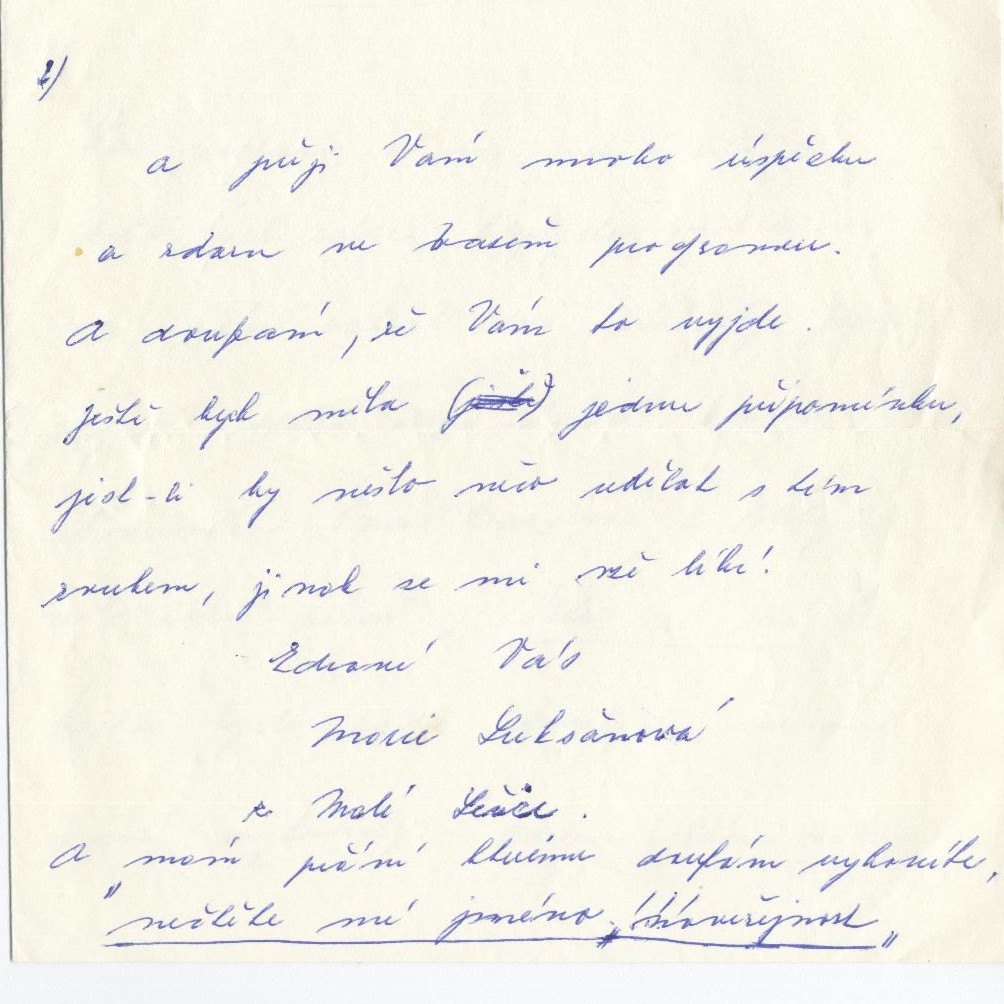 2)
a přeji Vám mnoho úspěchu
a zdaru ve Vašem programu.
A doufám, že Vám to vyjde.
Ještě bych měla jednu připomínku,
jest-li by nešlo něco udělat s tím
zvukem, jinak se mi vše líbí!
Zdraví Vás
Marie Lukšanová
z Malé
A mám přání kterému doufám vyhovíte,
„nečtěte mé jméno